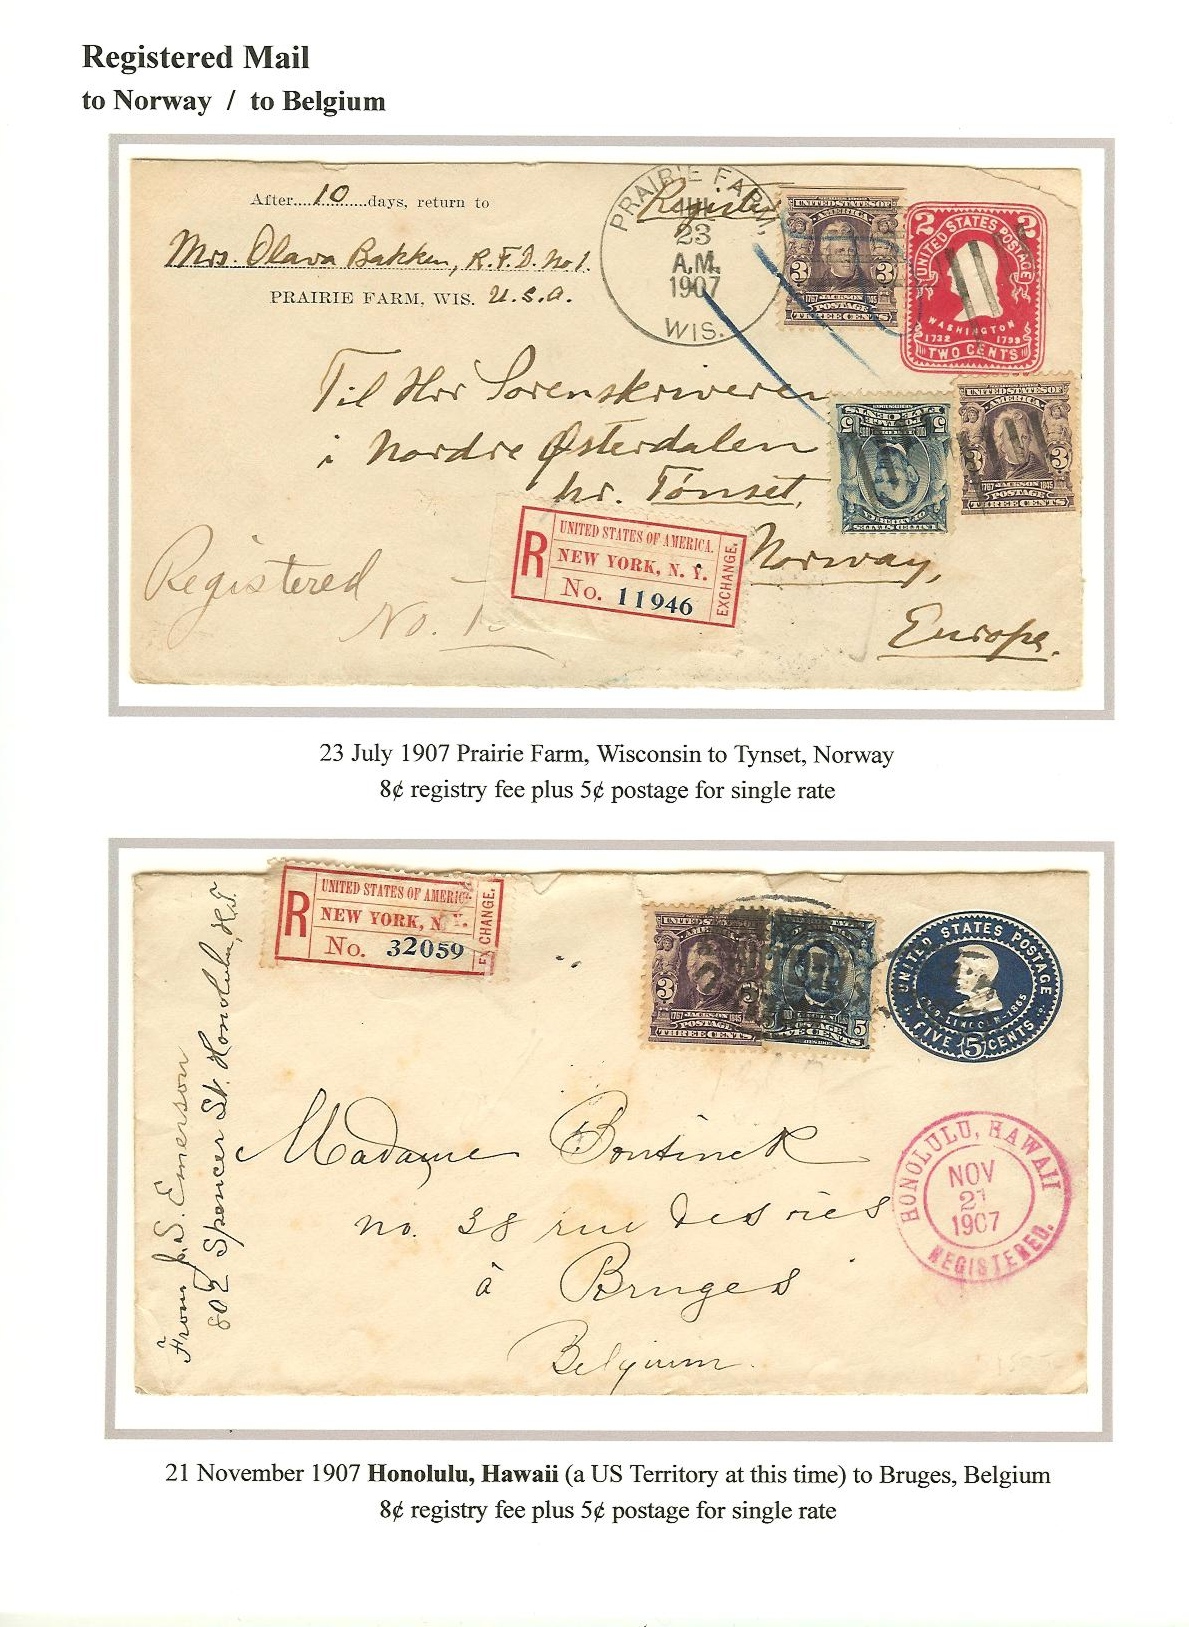 Registered Mail
to Norway / to Belgium
After....10......days, return to
Mrs. Olava Bakken, R.F.D. No 1.
PRAIRIE FARM, WIS. U.S.A.
PRAIRIE FARM,
JUL
23
A.M.
1907
WIS.
UNITED STATES OF
AMERICA
3 3
1767 JACKSON 1845
POSTAGE
THREE CENTS
2 2
UNITED STATES POSTAGE
WASHINGTON
1732 1799
TWO CENTS
Til Hrr Sorenskriveren
i Nordre Østerdalen
pr. Tönset,
Norway,
Europe.
5 5
UNITED STATES OF
AMERICA
3 3
1767 JACKSON 1845
POSTAGE
THREE CENTS
Registered
No.
R
UNITED STATES OF AMERICA.
NEW YORK, N. Y.
No. 11946
EXCHANGE.
23 July 1907 Prairie Farm, Wisconsin to Tynset, Norway
8¢ registry fee plus 5¢ postage for single rate
From J. S. Emerson
802 Spencer St. Honolulu, H.T.
R
UNITED STATES OF AMERIC
NEW YORK, N. Y.
No. 32059
EXCHANGE.
3
1767 JACKSON 1845
POSTAGE
THREE CENTS
5 5
POSTAGE
FIVE CENTS
UNITED STATES POSTAGE
LINCOLN-1865
FIVE 5 CENTS
Madame Bontinck
no. 38 rue des ries
à Bruges
Belgium.
HONOLULU, HAWAII
NOV
21
1907
REGISTERED.
21 November 1907 Honolulu, Hawaii (a US Territory at this time) to Bruges, Belgium
8¢ registry fee plus 5¢ postage for single rate